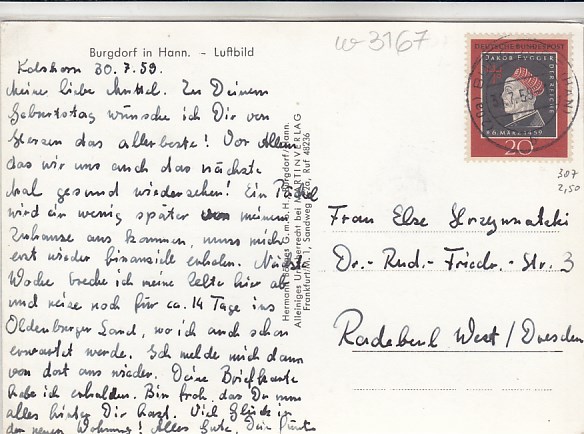 w 3167
Burgdorf in Hann. - Luftbild
Kolshorn 30.7.59.
Meine liebe Muttel. Zu Deinem
Geburtstag wünsche ich Dir von
Herzen das allerbeste! Vor Allem
das wir uns auch das nächste
Mal gesund wiedersehen! Ein Päckel
wird ein wenig später von meinem
Zuhause aus kommen, muss mich
erst wieder finanziell erholen. Nächste
Woche breche ich meine Zelte hier ab
und reise noch für ca. 14 Tage ins
Oldenburger Land, wo ich auch schon
erwartet werde. Ich melde mich dann
von dort aus wieder. Deine Briefkarte
habe ich erhalten. Bin froh, das Du nun
alles hinter Dir hast. Viel Glück in
der neuen Wohnung! Alles Gute, Dein
Hermann G.m.b.H., Burgdorf/Hann.
Alleiniges Urheberrecht bei MARTINVERLAG
Frankfurt/M. 1, Sandweg Ruf 48236
DEUTSCHE BUNDESPOST
JAKOB FUGGER
DER REICHE
✶ 6. MÄRZ 1459
20
307
2,50
Frau Else
Dr.-Rud.-Friedr.-Str. 3
Radebeul West/Dresden